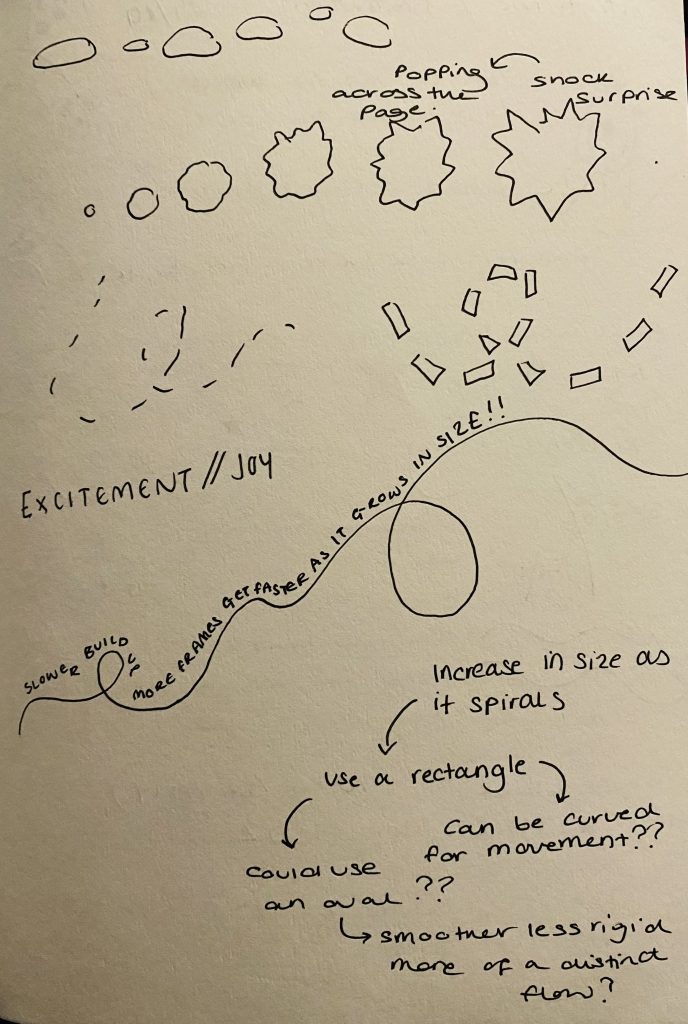 Popping
across the
page.
shock
surprise
EXCITEMENT // JOY
SLOWER BUILD UP
MORE FRAMES GET FASTER AS IT GROWS IN SIZE!!
Increase in size as
it spirals
use a rectangle
can be curved
for movement??
could use
an oval ??
smoother less rigid
more of a distinct
flow?